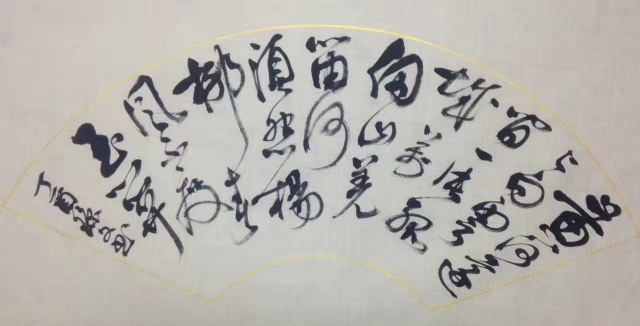 黄河远
上白云
间一片孤
城万
仞山羌
笛何
须怨杨
柳春
风不度
玉关
丁酉书